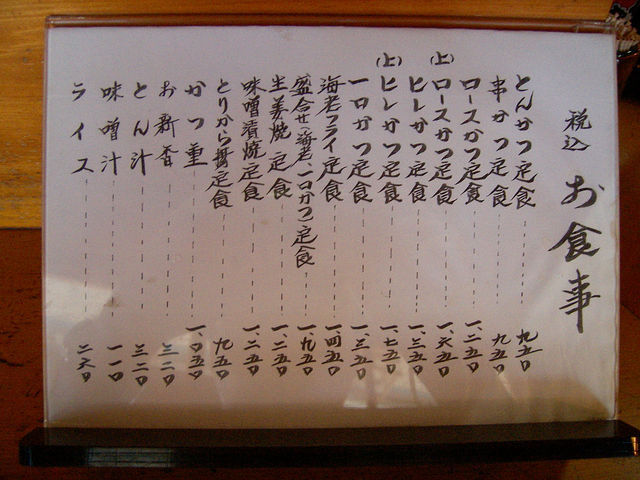 税込 お食事
とんかつ定食 九五〇
串かつ定食 九五〇
ロースかつ定食 一、二五〇
(上)ロースかつ定食 一、六五〇
ヒレかつ定食 一、三五〇
(上)ヒレかつ定食 一、七五〇
一口かつ定食 一、三五〇
海老フライ定食 一、四五〇
盛合せ(海老、一口かつ)定食 一、九五〇
生姜焼定食 一、二五〇
味噌漬焼定食 一、二五〇
とりから揚定食 九五〇
かつ重 一、〇五〇
お新香 三二〇
とん汁 三二〇
味噌汁 一一〇
ライス 二六〇